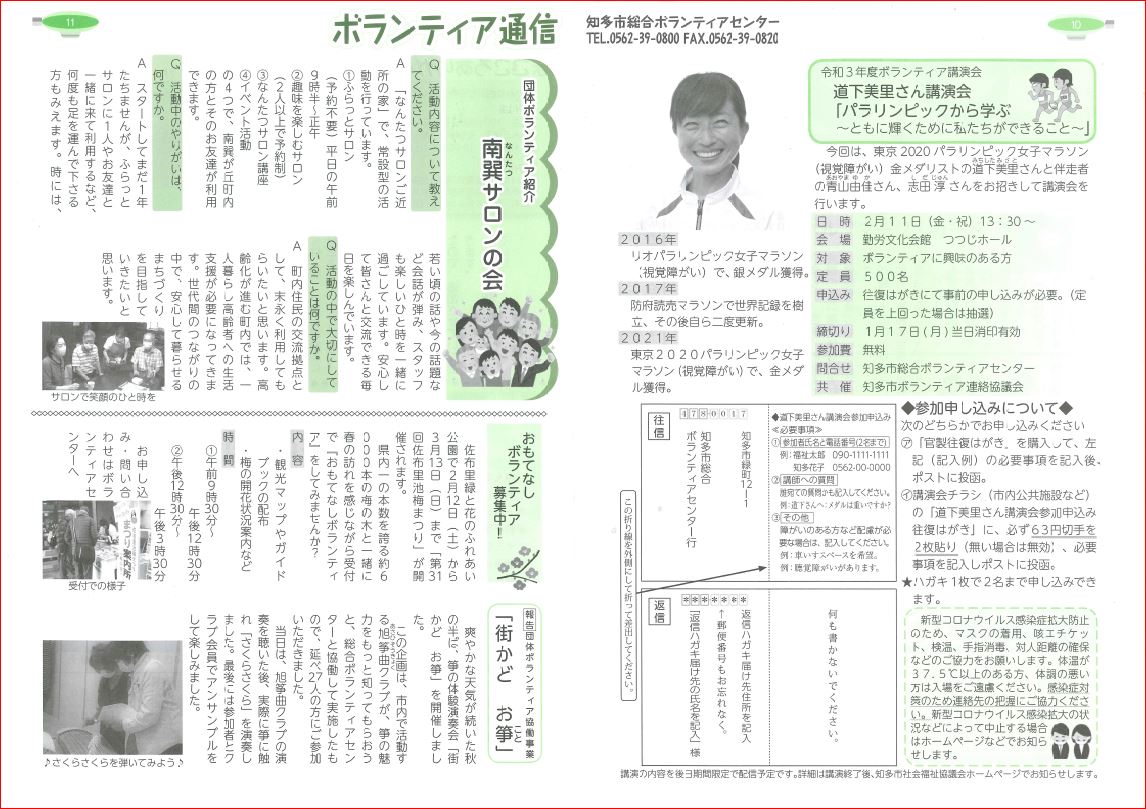 11
ボランティア通信
知多市総合ボランティアセンター
TEL.0562-39-0800 FAX.0562-39-0820
10
令和3年度ボランティア講演会
道下美里さん講演会
「パラリンピックから学ぶ
～ともに輝くために私たちができること～」
今回は、東京2020パラリンピック女子マラソン
(視覚障がい)金メダリストの道下美里さんと伴走者
みちしたみさと
の青山由佳さん、志田淳さんをお招きして講演会を
あおやまゆか
しだじゅん
行います。
日時 2月11日(金・祝)13:30～
会場 勤労文化会館 つつじホール
対象 ボランティアに興味のある方
定員 500名
申込み 往復はがきにて事前の申し込みが必要。(定
員を上回った場合は抽選)
締切り 1月17日(月)当日消印有効
参加費 無料
問合せ 知多市総合ボランティアセンター
共催 知多市ボランティア連絡協議会
2016年
リオパラリンピック女子マラソン
(視覚障がい)で、銀メダル獲得。
2017年
防府読売マラソンで世界記録を樹
立、その後自ら二度更新。
2021年
東京2020パラリンピック女子
マラソン(視覚障がい)で、金メダ
ル獲得。
◆参加申し込みについて◆
次のどちらかでお申し込みください
㋐「官製往復はがき」を購入して、左
記(記入例)の必要事項を記入後、
ポストに投函。
㋑講演会チラシ(市内公共施設など)
の「道下美里さん講演会参加申込み
往復はがき」に、必ず63円切手を
2枚貼り(無い場合は無効)、必要
事項を記入しポストに投函。
★ハガキ1枚で2名まで申し込みでき
ます。
新型コロナウイルス感染症拡大防止
のため、マスクの着用、咳エチケッ
ト、検温、手指消毒、対人距離の確保
などのご協力をお願いします。体温が
37.5℃以上のある方、体調の悪い
方は入場をご遠慮ください。感染症対
策のため連絡先の把握にご協力くださ
い。新型コロナウイルス感染拡大の状
況などによって中止する場合
はホームページなどでお知ら
せします。
往信
4780017
知多市緑町12-1
知多市総合
ボランティアセンター 行
◆道下美里さん講演会参加申込み
≪必要事項≫
①参加者氏名と電話番号(2名まで)
例:福祉太郎 090-1111-1111
知多花子 0562-00-0000
②講師への質問
誰宛ての質問かも記入してください。
例:道下さんへ:メダルは重いですか?
③その他
障がいのある方など配慮が必
要な場合は、記入してください。
例:車いすスペースを希望。
例:聴覚障がいがあります。
この折り線を外側にして折って差出してください。
返信
*******
返信ハガキ届け先住所を記入
↑郵便番号もお忘れなく。
「返信ハガキ届け先の氏名を記入」様
何も書かないでください。
講演の内容を後日期間限定で配信予定です。詳細は講演終了後、知多市社会福祉協議会ホームページでお知らせします。
団体ボランティア紹介
南巽サロンの会
なんたつ
Q 活動内容について教え
てください。
A 「なんたつサロンご近
所の家」で、常設型の活
動を行っています。
①ふらっとサロン
(予約不要)平日の午前
9時半～正午
②趣味を楽しむサロン
(2人以上で予約制)
③なんたつサロン講座
④イベント活動
の4つで、南巽が丘町内
の方とそのお友達が利用
できます。
Q 活動中のやりがいは、
何ですか。
A スタートしてまだ1年
たちませんが、ふらっと
サロンに1人やお友達と
一緒に来て利用するなど、
何度も足を運んで下さる
方もみえます。時には、
若い頃の話や今の話題な
ど会話が弾み、スタッフ
も楽しいひと時を一緒に
過ごしています。安心し
て皆さんと交流できる毎
日を楽しんでいます。
Q 活動の中で大切にして
いることは何ですか。
A 町内住民の交流拠点と
して、末永く利用しても
らいたいと思います。高
齢化が進む町内では、一
人暮らし高齢者への生活
支援が必要になってきま
す。世代間のつながりの
中で、安心して暮らせる
まちづくり
を目指して
いきたいと
思います。
サロンで笑顔のひと時を
おもてなし
ボランティア
募集中!!
佐布里緑と花のふれあい
公園で2月12日(土)から
3月13日(日)まで「第31
回佐布里池梅まつり」が開
催されます。
県内一の本数を誇る約6
000本の梅の木と一緒に
春の訪れを感じながら受付
で『おもてなしボランティ
ア』をしてみませんか?
内容
・観光マップやガイド
ブックの配布
・梅の開花状況案内など
時間
①午前9時30分～
午後12時30分
②午後12時30分～
午後3時30分
お申し込
み・問い合
わせはボラ
ンティアセ
ンターへ
受付での様子
報告団体ボランティア協働事業
「街かど お箏」
こと
爽やかな天気が続いた秋
の半ば、箏の体験演奏会「街
かど お箏」を開催しまし
た。
この企画は、市内で活動す
る旭箏曲クラブが、箏の魅
力をもっと知ってもらおう
と、総合ボランティアセン
ターと協働して実施したも
ので、延べ27人の方にご参加
いただきました。
当日は、旭箏曲クラブの演
奏を聴いた後、実際に箏に触
れ「さくらさくら」を演奏し
ました。最後には参加者とク
ラブ会員でアンサンブルを
して楽しみました。
♪さくらさくらを弾いてみよう♪